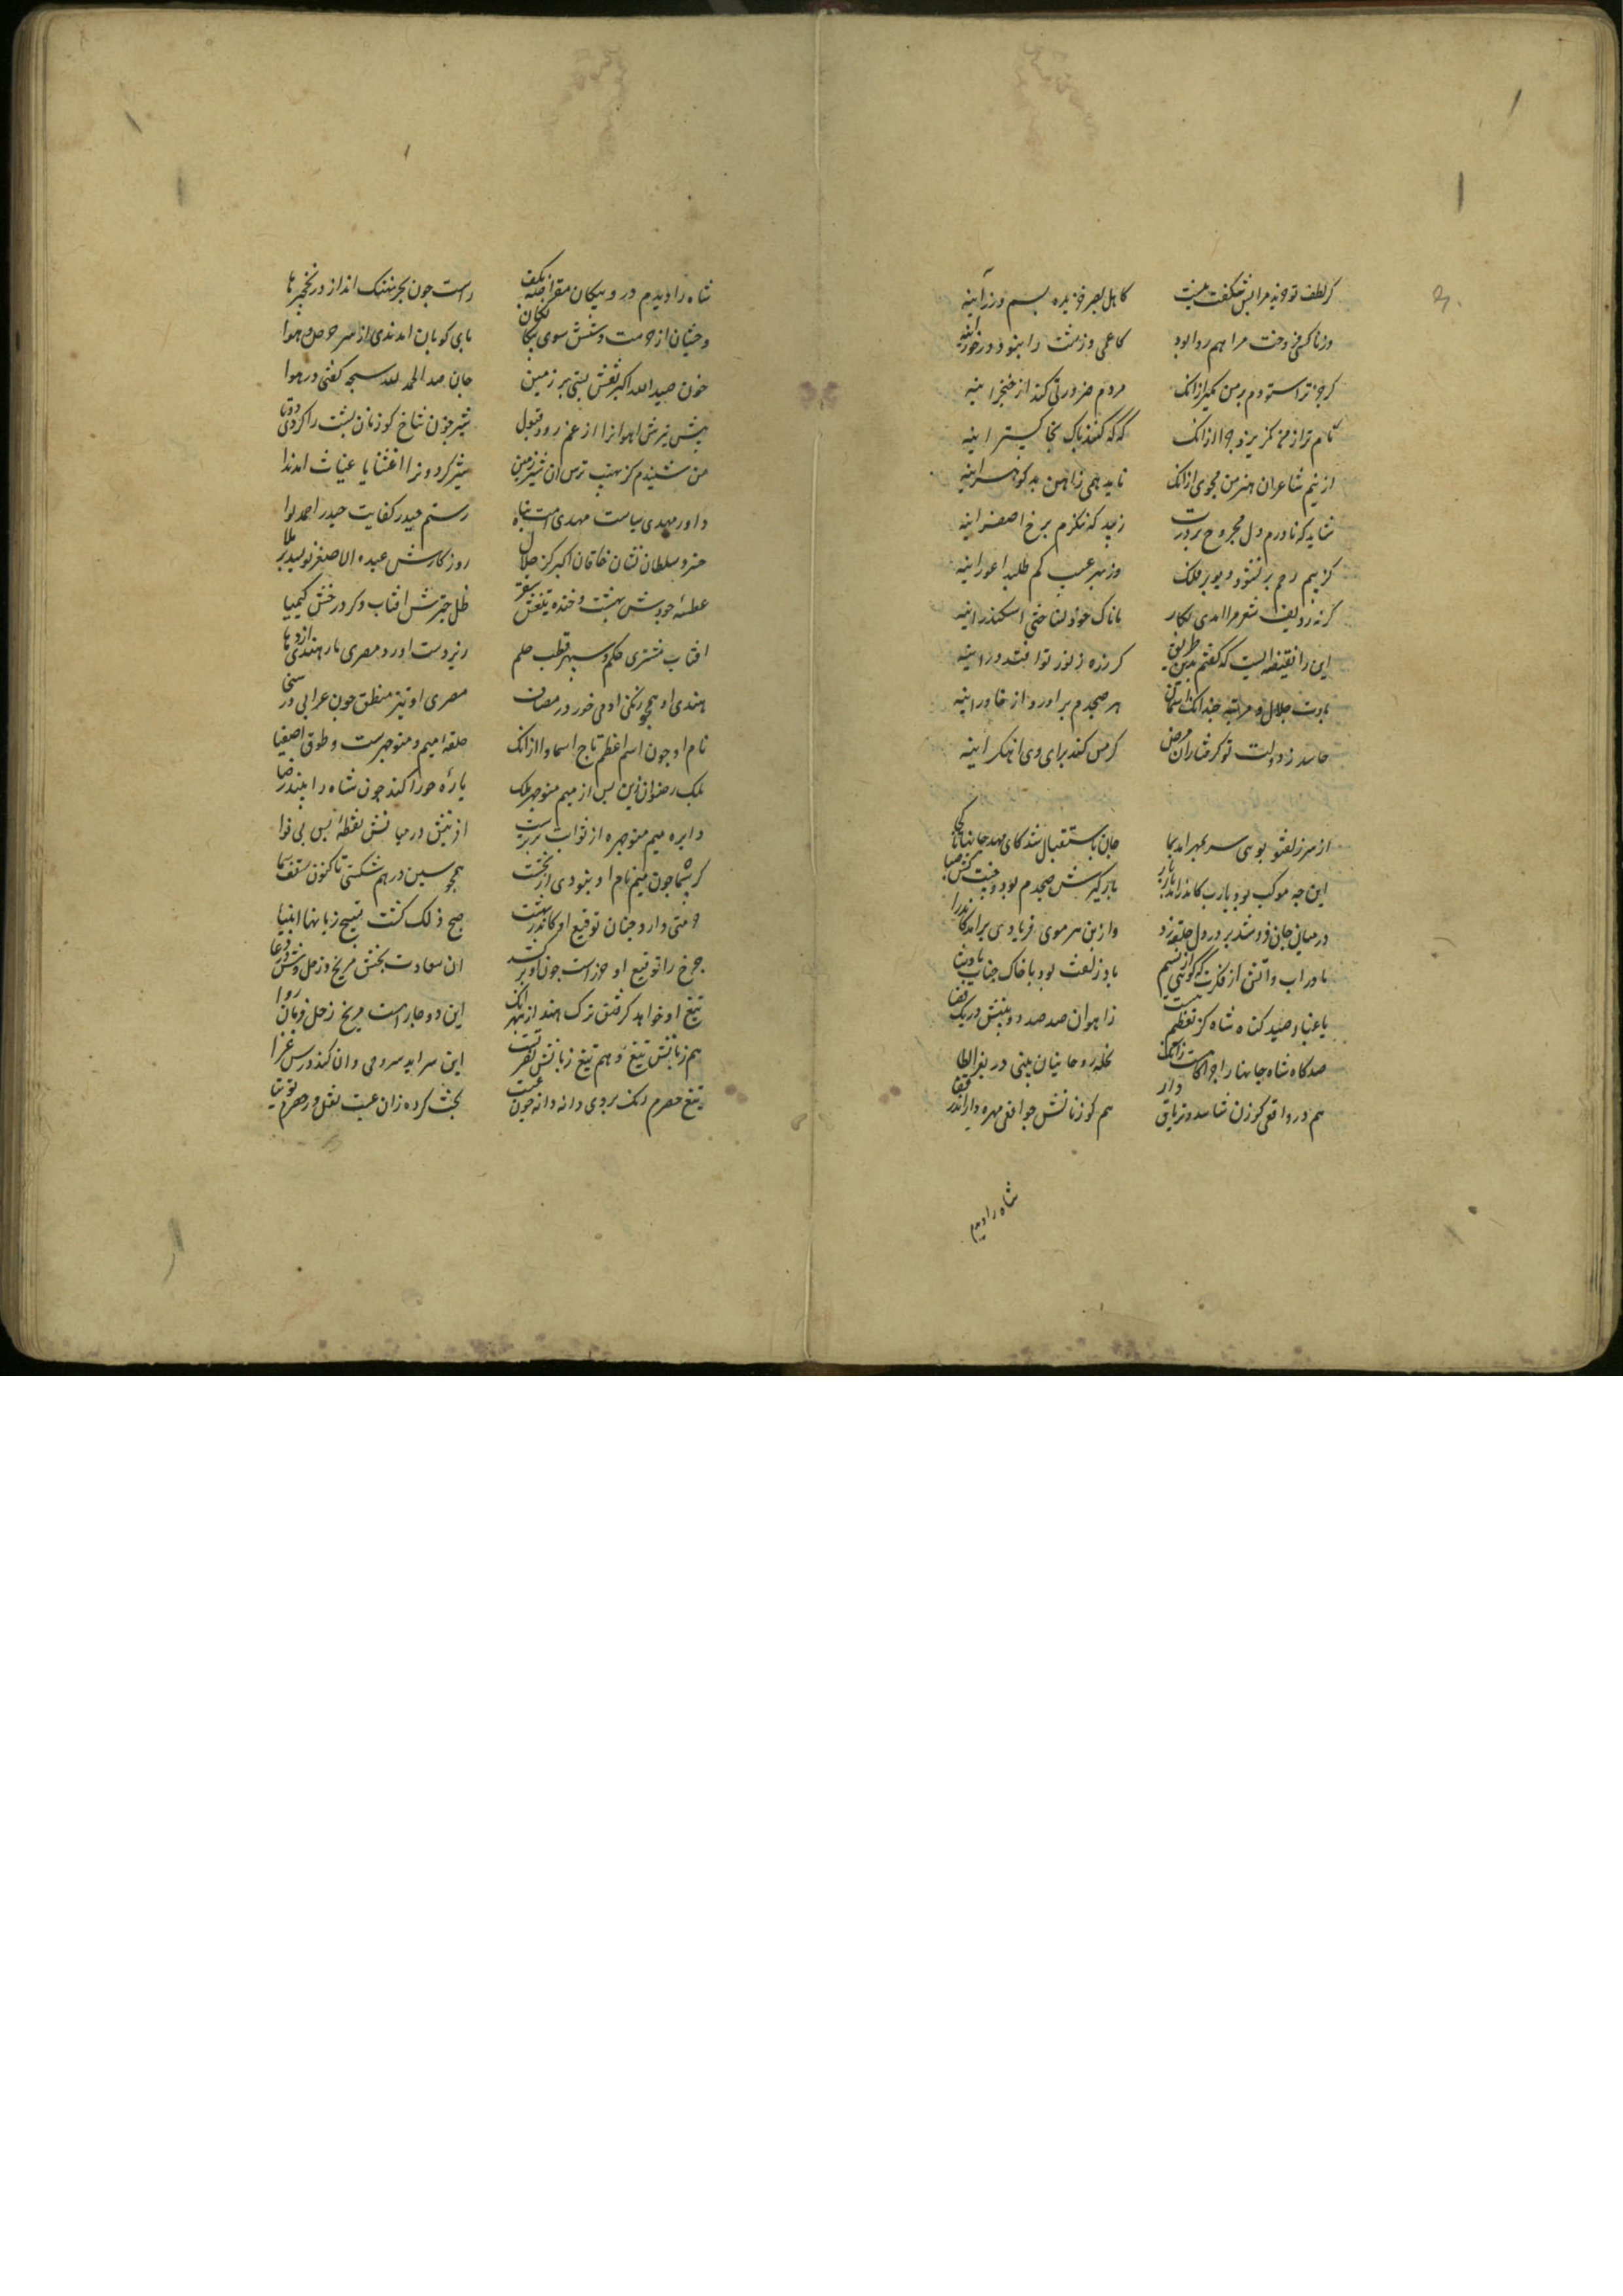 گر لطف تو خرید مرا بس شگفت نیست کاهل بصر خزیده بسیم و زر آینه
ور ناکسی فروخت مرا هم روا بود کاعمی و زشت را نبود در خور آینه
گر جز ترا ستودم بر من مگیر ازانک مردم ضرورتی کند از خنجر آینه
نام تو از من گریزد چرا ازانک که که کنند پاک بخاکستر آینه
از نیم شاعران هنر من مجوی ازانک ناید همی ز آهن بد گوهر آینه
شاید که ناورم دل مجروح بر درت زیبد که ننگرم برخ اصفر آینه
کز بیم رجم بر نشود دیو بر فلک وز بهر عیب کم طلبد اعور آینه
گر نه ردیف شعر مرا امدی بکار باناک خود نساختی اسکندر آینه
این را نقیضه ایست که گفتم بدین طریق کر ذره ز نور تو افتد در آینه
بادت جلال و مرتبه چندانک آسمان هر صبحدم براورد از خاور آینه
حاسد ز دولت تو گرفتار آن مرض کز مس کند برای وی آهنگر آینه
از سر زلف تو بوی سر بمهر آمد بما جان باستقبال شد کای مهد جانها تا کجا
این چه موکب بود یارب کاندر امد بارگیرش صبحدم بود و جنیبت کش صبا
در میان جان فروشد بر در دل حلقه زد واز بن هر موی فریادی بر امد کاندرا
ماد راب و آتش از فکرت که گویی از نسیم باد زلفت بود با خاک جناب پادشا
یا غبار صید گاه شاه کز تعظیم هست ز آهوان صد صد و بینش در یک فضا
صیدگاه شاه جانها را چراگاهست زانک لخلخه روحانیان بینی در بعر الظبا
هم درو افعی گوزن آسا شده تریاق دار هم گوزنانش چو افعی مهره دار اندر قفا
شاه را دیدم
شاه را دیدم درو پیکان مقراضه بکف راست چون بحر نهنگ انداز در نخجیرها
وحشیان از حرمت دستش سوی پیکان پای کوبان امدندی از سر حرص و هوا
خون صید الله اکبر نقش بستی بر زمین جان صد الحمد لله سبحه گفتی در هوا
پیش تیرش آهوانرا از غم رد و قبول شیر خون شاخ گوزنان پشت را کردی دوتا
من شنیدم کز نهیب ترس آن شیر زمین شیر گردونرا اغثنا یا غیاث امد ندا
داور مهدی سیاست مهدی امت پناه رستم حیدر کفایت حیدر احمد لوا
خسرو سلطان نشان خاقان اکبر کز جلال روزگارش عبده الاصغر نویسد بر ملا
عطسه جودش بهشت و خنده تیغش سقر ظل چترش آفتاب و گرد رخشش کیمیا
آفتاب مشتری حکم و سپهر قطب حلم زیر دست اورد مصری مار هندی اژدها
هندی او همچو زنگی آدمی خور در مصاف مصری او تیز منطق چون عرابی در سخا
نام او چون اسم اعظم تاج اسما دان ازانک حلقه میم منوچهرست و طوق اصفیا
ملک رضوان زین پس از میم منوچهر ملک یاره حورا کند چون شاه را بیند رضا
دایره میم منوچهر از ثوابت برترست از تنش در میانش نقطه بس بی نوا
گر نه شما چون میم نام او نبودی از نخست همچو سین در هم شکستی تا کنون سقف سما
حرمتی دارد چنان توقیع او کاندر بهشت صح ذلک گشت تسبیح زبانها انبیا
چرخ را توقیع او حرزاست چون او برکشد آن سعادت بخش مریخ و زحل وش در دعا
تیغ او خواهد گرفتن ترک هند از بهر انک این دو جا راست مریخ زحل فرمان روا
هم زبانش تیغ و هم تیغ زبانش نصرتست این سراید سرو حی و ان کند درس غزا
تیغ حصرم رنگ بروی دانه دانه چون عنب بخت کرده زان عنب نقل و ز حصرم توتیا